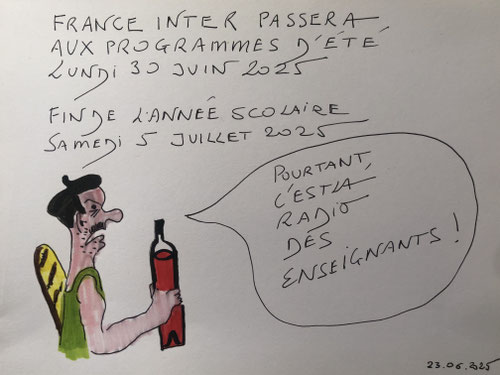 FRANCE INTER PASSERA
AUX PROGRAMMES D'ÉTÉ
LUNDI 30 JUIN 2025
FIN DE L'ANNÉE SCOLAIRE
SAMEDI 5 JUILLET 2025
POURTANT,
C'EST LA
RADIO
DES
ENSEIGNANTS !
23.06.2025